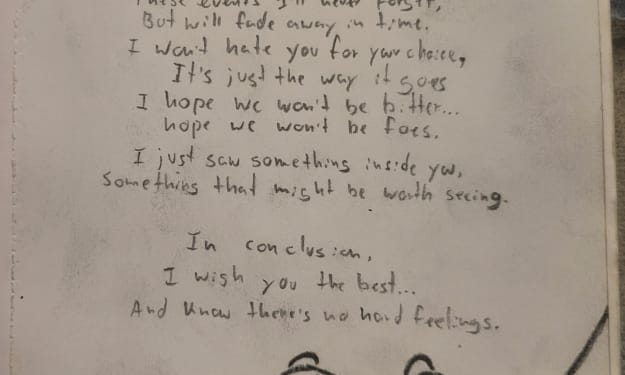 These events I'll never forget,
But will fade away in time.
I won't hate you for your choice,
It's just the way it goes
I hope we won't be bitter...
hope we won't be foes.
I just saw something inside you,
Something that might be worth seeing.
In conclusion,
I wish you the best...
And know there's no hard feelings.